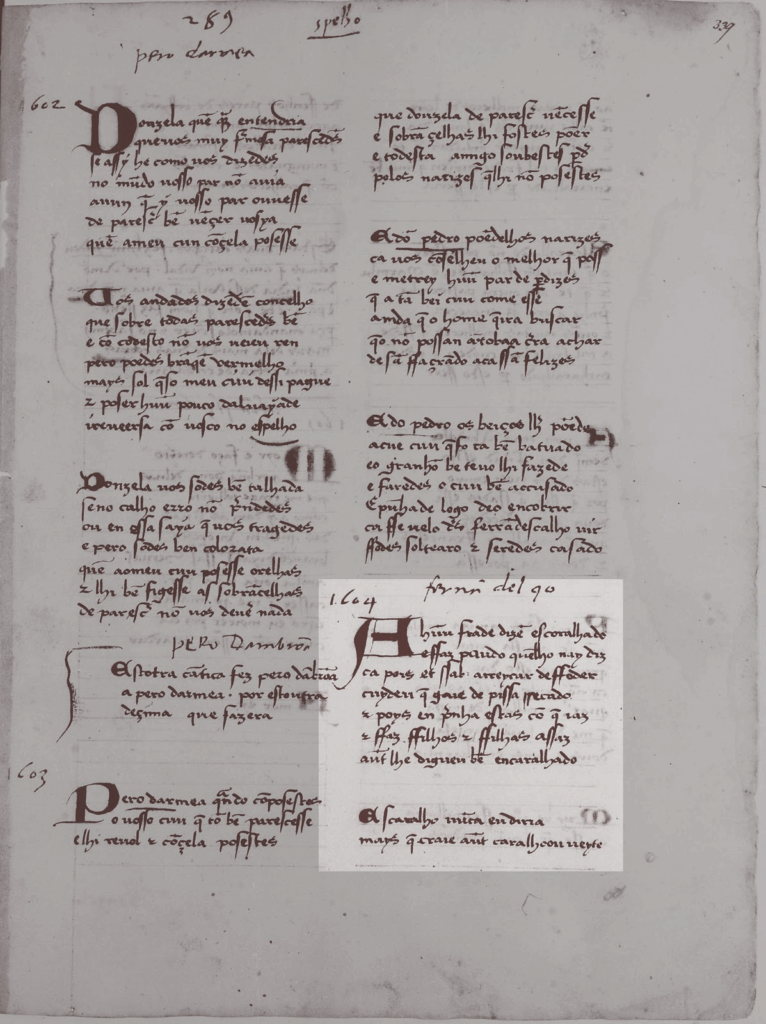 289
spelho
337
pero darmea
1602
Donzela quẽ q̃r entendria
que uos muy fr̃mosa parescedes
se assy he como uos dizedes
no mũdo uosso par nõ auia
auun q̃ y uosso par ouuesse
de paresç bẽ uẽçer uosya
quẽ ameu cuu cõçela posesse
Uos andades dizẽde concelho
que sobre todas parescedes bẽ
e cõ todesto nõ uos ueieu ren
pero poedes brãq̃e uermelho
mays sol q̃so meu cuu dessi pague
z poser hũu pouco daluayade
reueersa cõ uosco no espelho
Donzela uos sodes bẽ talhada
seno talho erro nõ p̃ndedes
ou en essa saya q̃ uos tragedes
e pero sodes ben colorata
quẽ aomeu cuu posesse orelhas
z lhi bẽ figesse as sobrãcelhas
de paresç nõ uos deuẽ nada
pero Dambroa
Astotra cãtica fez pero dãbroa
a pero darmea. por estoutra
deçima que fazera
1603
Pero darmea q̃ndo cõposestes
o uosso cuu q̃ tõ bẽ parescesse
e lhi reuol z cõçela posestes
que donzela de paresç uẽcesse
e sobrãçelhas lhi fostes poer
e todesta amigo soubestes p̃d
polos narizes q̃lhi nõ posestes
Adõ pedro põedelhos narizes
ca uos cõselheu o melhor q̃ poss
e metrey hũu par de p̃dizes
q̃ a tã bel cuu come esse
ainda q̃ o home q̃ira buscar
quo nõ possan achar
de sã ffagrado a ssã felizes
Ado pedro os beiços lhi põede
aeue cuu q̃so ca bẽ baruado
eo granhõ bẽ teuo lhi fazede
e faredes o cuu bẽ acusado
E punhade logo deo encobrir
ca sse uelo dõ ferrãdescalho uir
ssodes solteiro z seredes casado
fernã del go
1604
A hũu frade dizẽ escaralhado
effaz pecado quẽlho uay diz
ca pois el ssab arreytar deffoder
cuyden q̃ gaie de pissa ffecado
z poys en p̃nha estas cõ q̃ iaz
z ffaz ffilhos z ffilhas assaz
ant lhe digueu bẽ encaralhado
Ascaralho nũca eu diria
mays q̃ traie ant caralhou ueyte